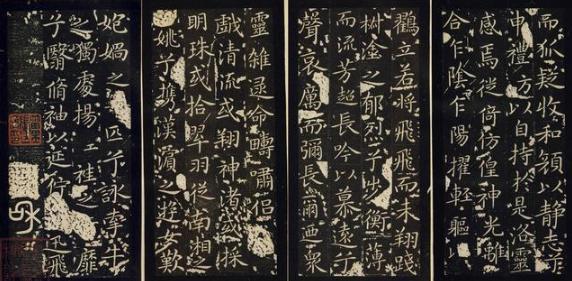 而狐疑收和顏以静志兮
申禮防以自持於是洛靈
感焉徙倚仿偟神光離
合乍陰乍陽擢輕軀以
鸖立若將飛飛而未翔踐
椒塗之郁烈兮步衡薄
而流芳超長吟以慕遠兮
聲哀厲而彌長爾迺衆
靈雜遝命疇嘯侶
戲清流或翔神渚或採
明珠或拾翠羽從南湘之
兮攜漢濱之遊女歎
媧之匹兮詠牽牛
之獨處揚袿之靡
兮翳脩袖以延佇迅飛